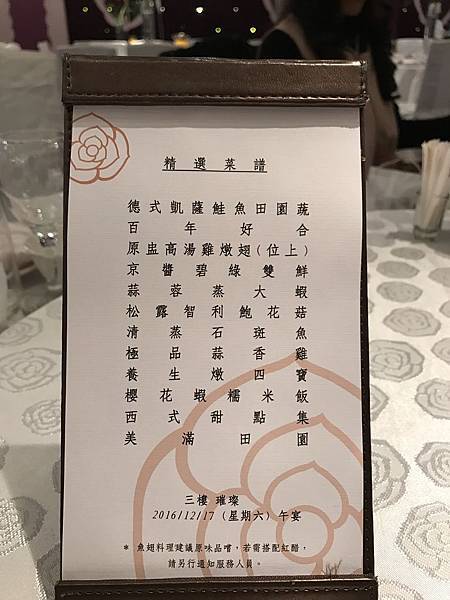 精選菜譜
德式凱薩鮭魚田園蔬
百年好合
原盅高湯雞燉翅(位上)
京醬碧綠雙鮮
蒜蓉蒸大蝦
松露智利鮑花菇
清蒸石斑魚
極品蒜香雞
養生燉四寶
櫻花蝦糯米飯
西式甜點集
美滿田園
三樓 璀璨
2016/12/17 (星期六) 午宴
* 魚翅料理建議原味品嚐，若需搭配紅醋，
請另行通知服務人員。